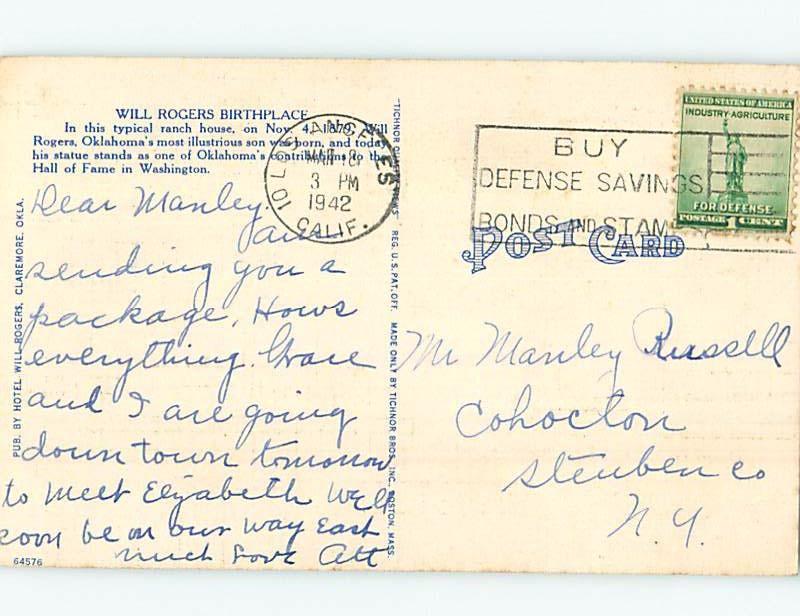 WILL ROGERS BIRTHPLACE
In this typical ranch house, on Nov. 4, 1879, Will
Rogers, Oklahoma's most illustrious son was born, and today
his statue stands as one of Oklahoma's contributions to the
Hall of Fame in Washington.
LOS ANGELES
10
MAR 18
3 PM
1942
CALIF.
Dear Manley.
am
sending you a
package, Hows
everything. Grace
and I are going
down town tomorrow
to meet Elizabeth Will
soon be on our way East
much Love Att
64576
PUB. BY HOTEL WILL ROGERS, CLAREMORE, OKLA.
"TICHNOR QUALITY VIEWS" REG. U.S. PAT. OFF. MADE ONLY BY TICHNOR BROS., INC., BOSTON, MASS.
BUY
DEFENSE SAVINGS
BONDS AND STAM
UNITED STATES OF AMERICA
INDUSTRY-AGRICULTURE
FOR DEFENSE
POSTAGE 1 CENT
POST CARD
Mr Manley Russell
Cohocton
Steuben co
N.Y.